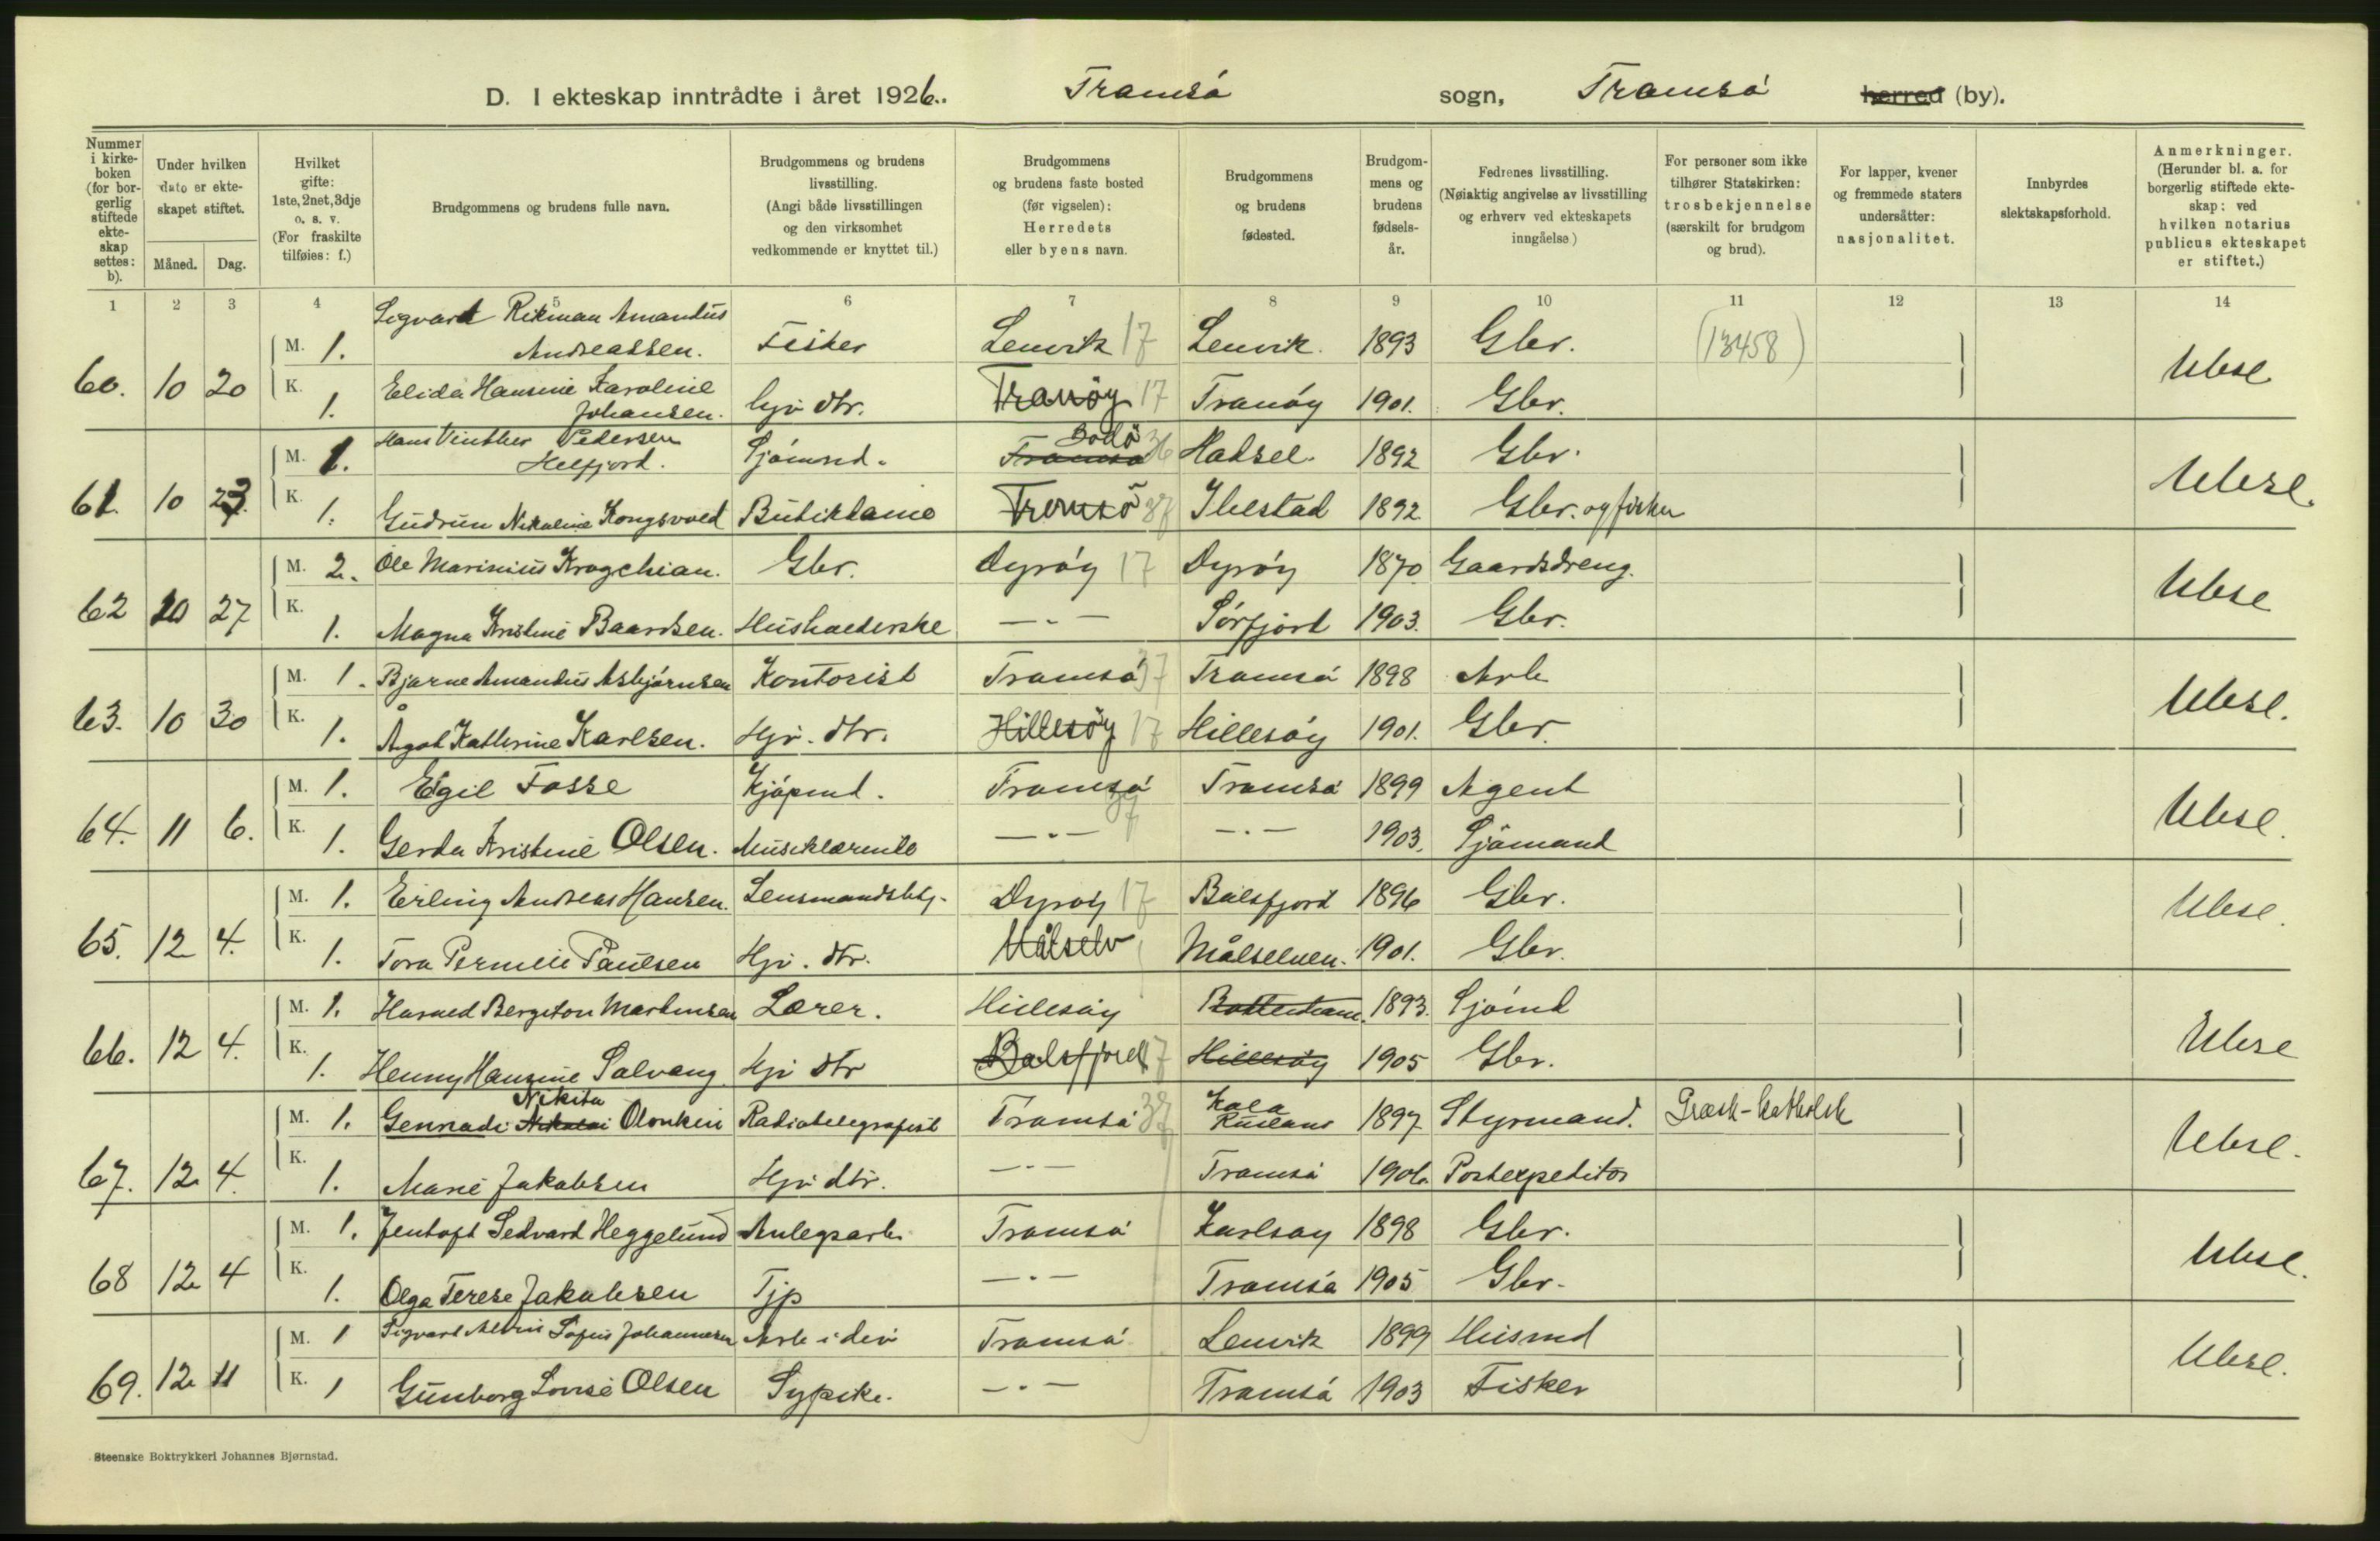 D. I ekteskap inntrådte i året 1926.. Tromsö sogn, Tromsö herred (by).
Nummer i kirkeboken (for borgerlig stiftede ekteskap settes: b).
Under hvilken dato er ekteskapet stiftet.
Måned. Dag.
Hvilket gifte: 1ste, 2net, 3dje o. s. v. (For fraskilte tilføies: f.)
Brudgommens og brudens fulle navn.
Brudgommens og brudens livsstilling. (Angi både livsstillingen og den virksomhet vedkommende er knyttet til.)
Brudgommens og brudens faste bosted (før vigselen): Herredets eller byens navn.
Brudgommens og brudens fødested.
Brudgommens og brudens fødselsår.
Fedrenes livsstilling. (Nøiaktig angivelse av livsstilling og erhverv ved ekteskapets inngåelse)
For personer som ikke tilhører Statskirken: trosbekjennelse (særskilt for brudgom og brud).
For lapper, kvener og fremmede staters undersåtter: nasjonalitet.
Innbyrdes slektskapsforhold.
Anmerkninger. (Herunder bl. a. for borgerlig stiftede ekteskap: ved hvilken notarius publicus ekteskapet er stiftet.)
1 2 3 4 5 6 7 8 9 10 11 12 13 14
60. 10 20 M. 1. Sigvard Rikman Amandus Andreassen. Fisker Lenvik 17 Lenvik. 1893 Gbr. (13458) Ubsl
K. 1. Elida Hansine Karoline Johansen. Hjv dtr. Tranöy 17 Tranöy 1901. Gbr.
61. 10 23. M. 1. Hans Vinther Pedersen Helfjord. Sjömnd. Tromsö Bodö 36 Hadsel. 1892 Gbr. Ubsl.
K. 1. Gudrun Nikoline Kongsvold Butikdame Tromsö 37 Ibestad 1892 Gbr. og fisker
62 10 27 M. 2. Ole Marinius Kragchian. Gbr. Dyröy 17 Dyröy 1870 Gaardsdreng. Ubsl
K. 1. Magna Kristine Baardsen. Husholderske — " — Sörfjord 1903. Gbr.
63. 10 30 M. 1. Bjarne Amandus Asbjörnsen Kontorist Tromsö 37 Tromsö 1898 Arb Ubsl.
K. 1. Ågot Kathrine Karlsen. Hjv. dtr. Hillesöy 17 Hillesöy 1901. Gbr.
64. 11 6. M. 1. Egil Fosse Kjöpmd. Tromsö 37 Tromsö 1899 Agent Ubsl.
K. 1. Gerda Kristine Olsen. Musiklærerinde — " — — " — 1903. Sjömand
65. 12 4. M. 1. Erling Andreas Hansen. Lensmandsbtj. Dyröy 17 Balsfjord 1896 Gbr. Ubsl.
K. 1. Tora Pernille Paulsen Hjv. dtr. Målselv Målselven. 1901. Gbr.
66. 12 4. M. 1. Harald Bergiton Martinsen Lærer. Hillesöy 1893. Sjömd Ubsl
K. 1. Henny Hansine Solvang Hjv dtr Balsfjord 17 Hillesöy 1905 Gbr.
67. 12 4. M. 1. Gennadi Nikolai Nikita Olonkin Radiotelegrafist Tromsö 37 Kola Rusland 1897 Styrmand. Græsk-katholsk Ubsl.
K. 1. Marie Jakobsen Hjv dtr. — " — Tromsö 1906. Postexpeditör
68 12 4 M. 1. Jentoft Sedvard Heggelund Anlegsarb. Tromsö Karlsöy 1898 Gbr. Ubsl.
K. 1. Olga Terese Jakobsen Tjp — " — Tromsö 1905 Gbr.
69. 12 11 M. 1 Sigvart Sofus Johannesen Arb i div Tromsö Lenvik 1899 Husmd Ubsl.
K. 1 Gunborg Lovise Olsen Sypike. — " — Tromsö 1903 Fisker
Steenske Boktrykkeri Johannes Bjørnstad.